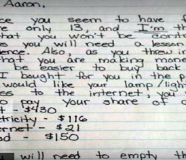 Aaron,
ce you seem to have
re only 13, and I'm th
at you won't be contr
s you will need a lesson
ence. Also, as you threw i
that you are making mone
be easier to buy back
I bought for you in the p
would like your lamp/ligh
ess to the internet, y
o pay your share of
t - $430
tricity - $116
ernet - $21
od - $150
will need to empty th